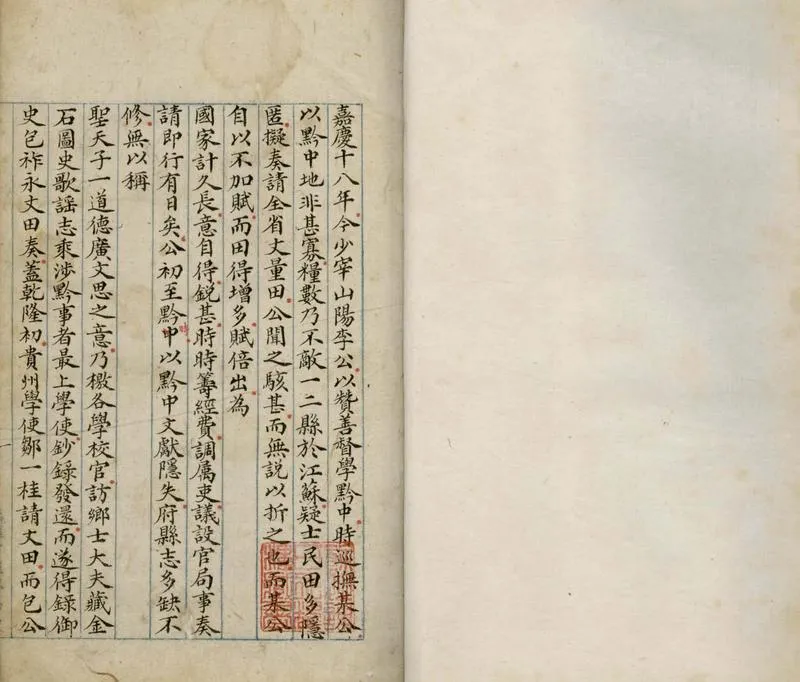 嘉慶十八年今少宰山陽李公以贊善督學黔中時巡撫某公
以黔中地非甚寡糧數乃不敵一二縣於江蘇疑士民田多隱
匿擬奏請全省丈量田公聞之駭甚而無說以折之也而某公
自以不加賦而田得增多賦倍出為
國家計久長意自得銳甚時時籌經費調属吏議設官局事奏
請即行有日矣公初至黔中以黔中文獻隱失府縣志多缺不
修無以稱
聖天子一道德廣文思之意乃檄各學校官訪鄉士大夫藏金
石圖史歌謡志乘涉黔事者最上學使鈔錄發還而遂得錄御
史包祚永丈田奏蓋乾隆初貴州學使鄒一桂請丈田而包公